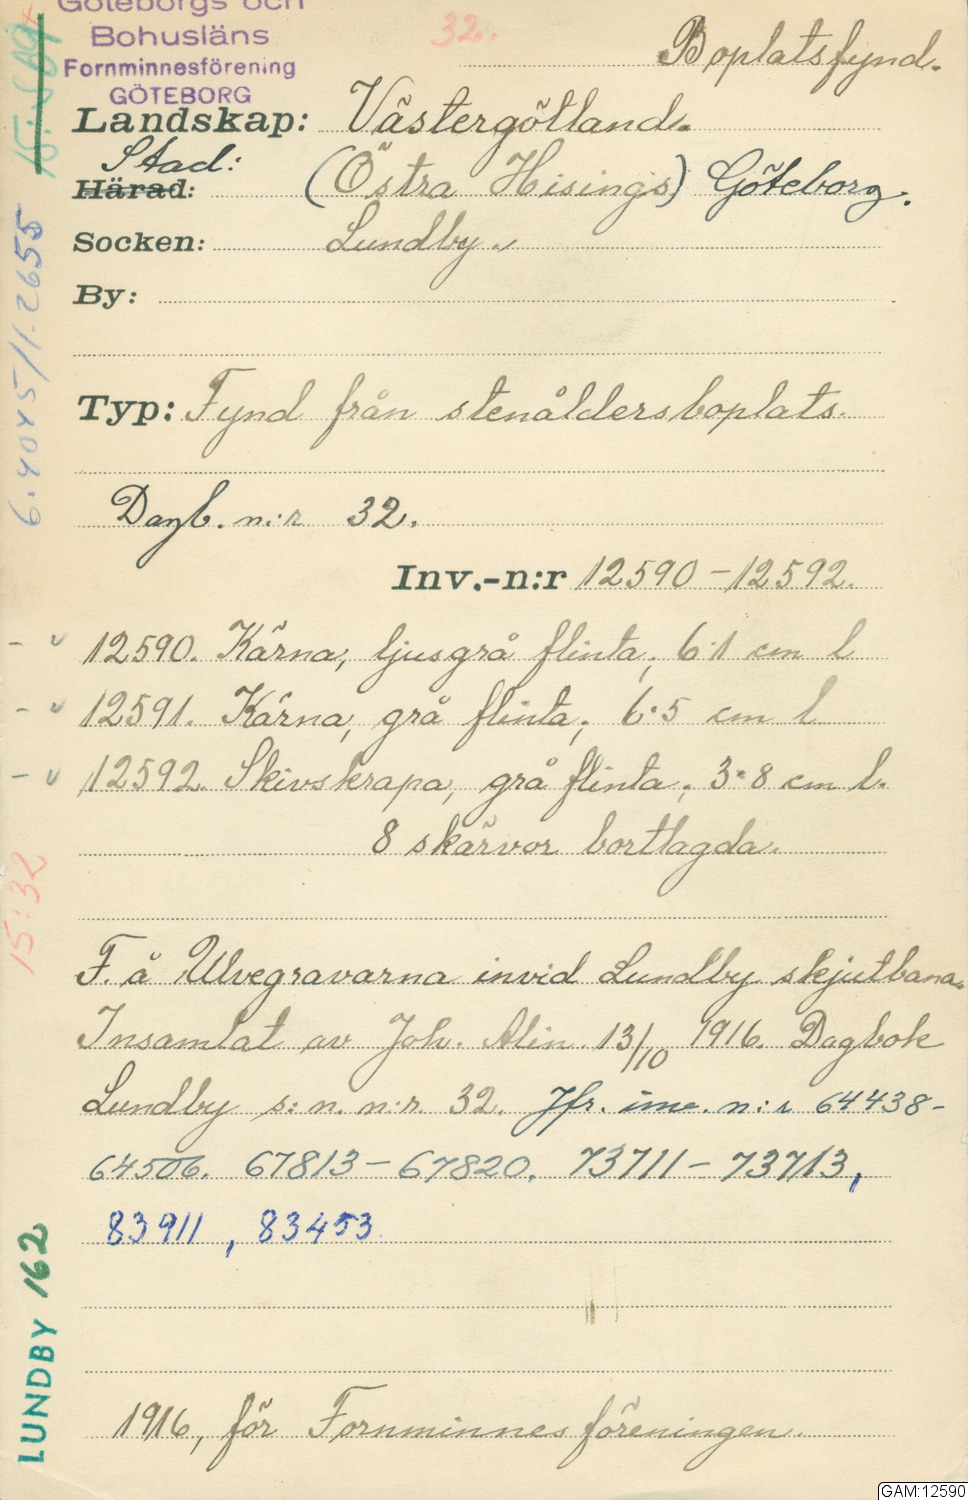 Göteborgs och
Bohusläns
Fornminnesförening
GÖTEBORG
32.
Boplatsfynd.
Landskap: Västergötland.
Stad:
Härad: (Östra Hisings) Göteborg.
Socken: Lundby
By:
Typ: Fynd från stenåldersboplats.
Dagb. n:r 32.
Inv.-n:r 12590-12592.
12590. Kärna, ljusgrå flinta; 6·1 cm l
12591. Kärna, grå flinta; 6·5 cm l
12592. Skivskrapa, grå flinta; 3·8 cm l.
8 skärvor bortlagda.
F. å Ulvegravarna invid Lundby skjutbana.
Insamlat av Joh. Alin 13/10 1916. Dagbok
Lundby s:n. n:r. 32. Jfr. inv. n:r 64438-
64506. 67813-67820. 73711-73713,
83911, 83453.
1916, för Fornminnesföreningen.
6.4045/1.2655
15:32
LUNDBY 162
GAM:12590